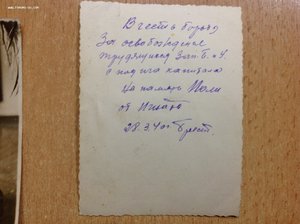 В честь борьбы
За освобождение
трудящихся Зап. Б. и У.
из под ига капитала
На память Поли
от Игната
28.3.40г. Брест.